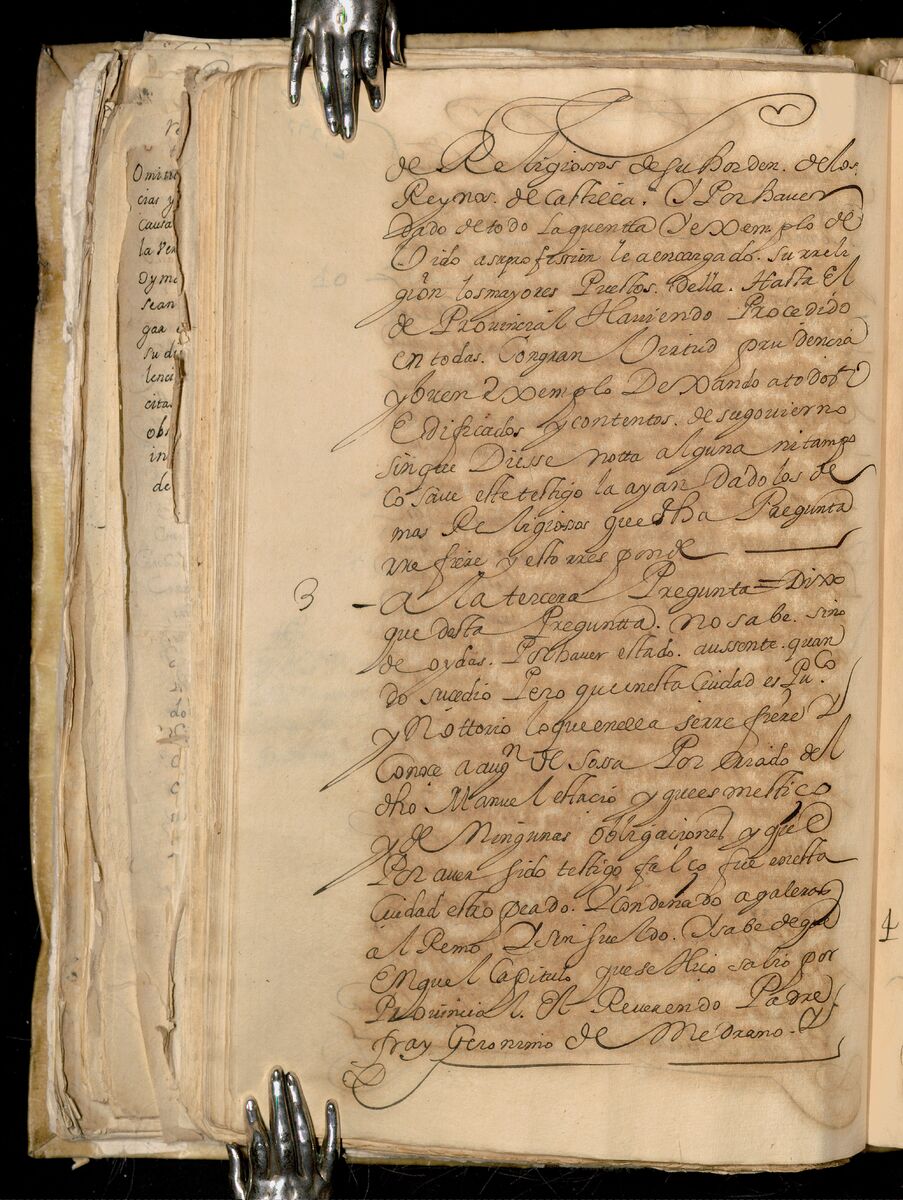 de Religiossos de su horden. de los.
Reynos. de Castilla. Y Por haver
dado de todo la quentta Y exemplo de
Vido a su profission le a encargado. su rreli
gión los mayores Puestos. della. Hasta El
de Provincial Haviendo Procedido
en todas. Con gran Virtud prudencia
y buen exemplo Dexando a todos
Edificados y contentos. de su govierno
sin que Diesse notta alguna ni tampo
co save este testigo la ayan dado los de
mas Religiosos que dha Pregunta
rrefiere y esto rresponde
3 - A la tercera Pregunta = Dixo
que desta Preguntta. no sabe. sino
de oydas. Por haver estado. aussente. quan
do sucedio Pero que en esta Ciudad es Puco
y Nottorio lo que en ella se rrefiere Y
Conoce a augn de Sossa Por criado del
dho Manuel estacio y que es mestico
y de Ningunas obligaciones y que
Por aver sido testigo falço fue en esta
Ciudad açotado. Y Condenado a galeras
al Remo Y sin sueldo. Y sabe de que
En quel Capitulo que se Hiço salio por
Provincial. El Reverendo Padre
fray Geronimo de Medrano. Y
Omitt
cias y
Causa
la Ven
sean
gar
su di
lenci
cita
obs
in
de
4